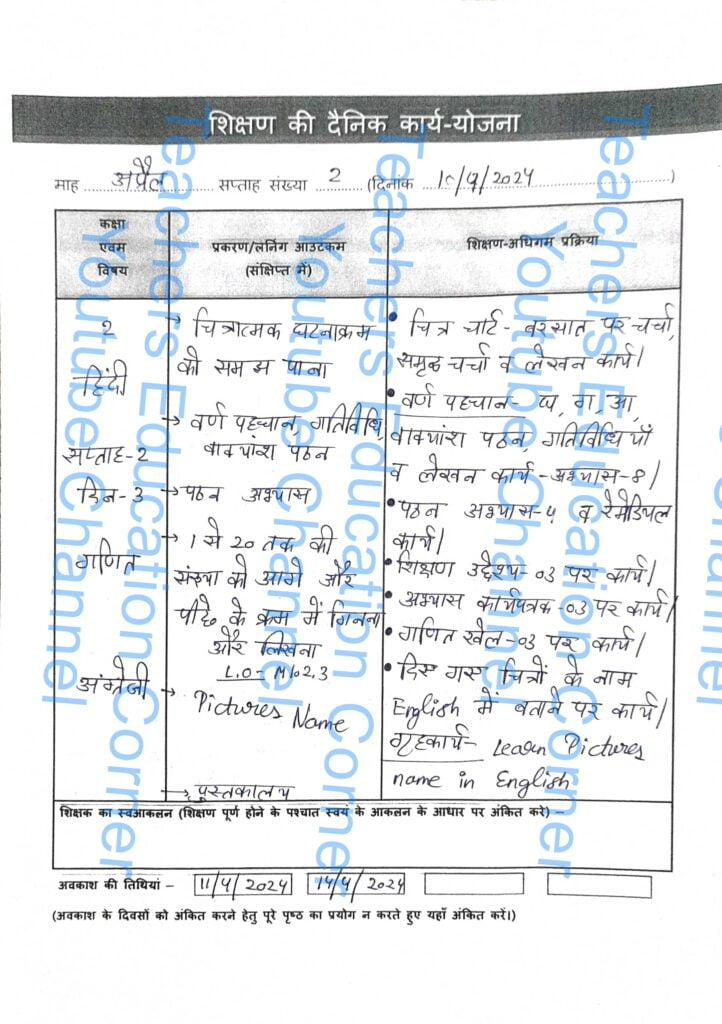 शिक्षण की दैनिक कार्य-योजना
माह अप्रैल सप्ताह संख्या 2 (दिनांक 10/4/2024)
कक्षा
एवम
विषय
प्रकरण/लर्निंग आउटकम
(संक्षिप्त में)
शिक्षण-अधिगम प्रक्रिया
2
हिंदी
सप्ताह-2
दिन-3
गणित
अंग्रेजी
→ चित्रात्मक घटनाक्रम
को समझ पाना
→ वर्ण पहचान, गतिविधि,
वाक्यांश पठन
→ पठन अभ्यास
→ 1 से 20 तक की
संख्या को आगे और
पीछे के क्रम में गिनना
और लिखना
L.O- M102.3
→ Pictures Name
→ पुस्तकालय
• चित्र चार्ट- बरसात पर चर्चा,
समृद्ध चर्चा व लेखन कार्य।
• वर्ण पहचान- घ, ग, आ,
वाक्यांश पठन, गतिविधियाँ
व लेखन कार्य - अभ्यास-8।
• पठन अभ्यास-4 व रेमेडियल
कार्य।
• शिक्षण उद्देश्य-03 पर कार्य।
• अभ्यास कार्यपत्रक-03 पर कार्य।
• गणित खेल-03 पर कार्य।
• दिए गए चित्रों के नाम
English में बताने पर कार्य।
गृहकार्य- Learn Pictures
name in English
शिक्षक का स्वआकलन (शिक्षण पूर्ण होने के पश्चात स्वयं के आकलन के आधार पर अंकित करे) –
अवकाश की तिथियां – 11/4/2024 14/4/2024
(अवकाश के दिवसों को अंकित करने हेतु पूरे पृष्ठ का प्रयोग न करते हुए यहाँ अंकित करें।)
Teachers Education Corner
Youtube Channel
Teachers Education Corner
Youtube Channel
Teachers Education Corner
Youtube Channel